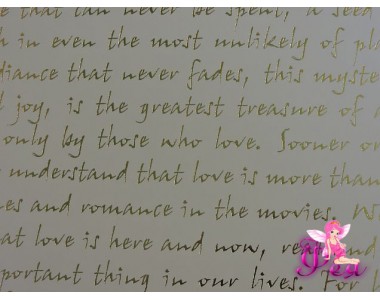 that can never be spent, a seed
in even the most unlikely of
that never fades, this
joy, is the greatest treasure of
only by those who love. Sooner or
understand that love is more than
and romance in the movies.
love is here and now,
thing in our lives. For